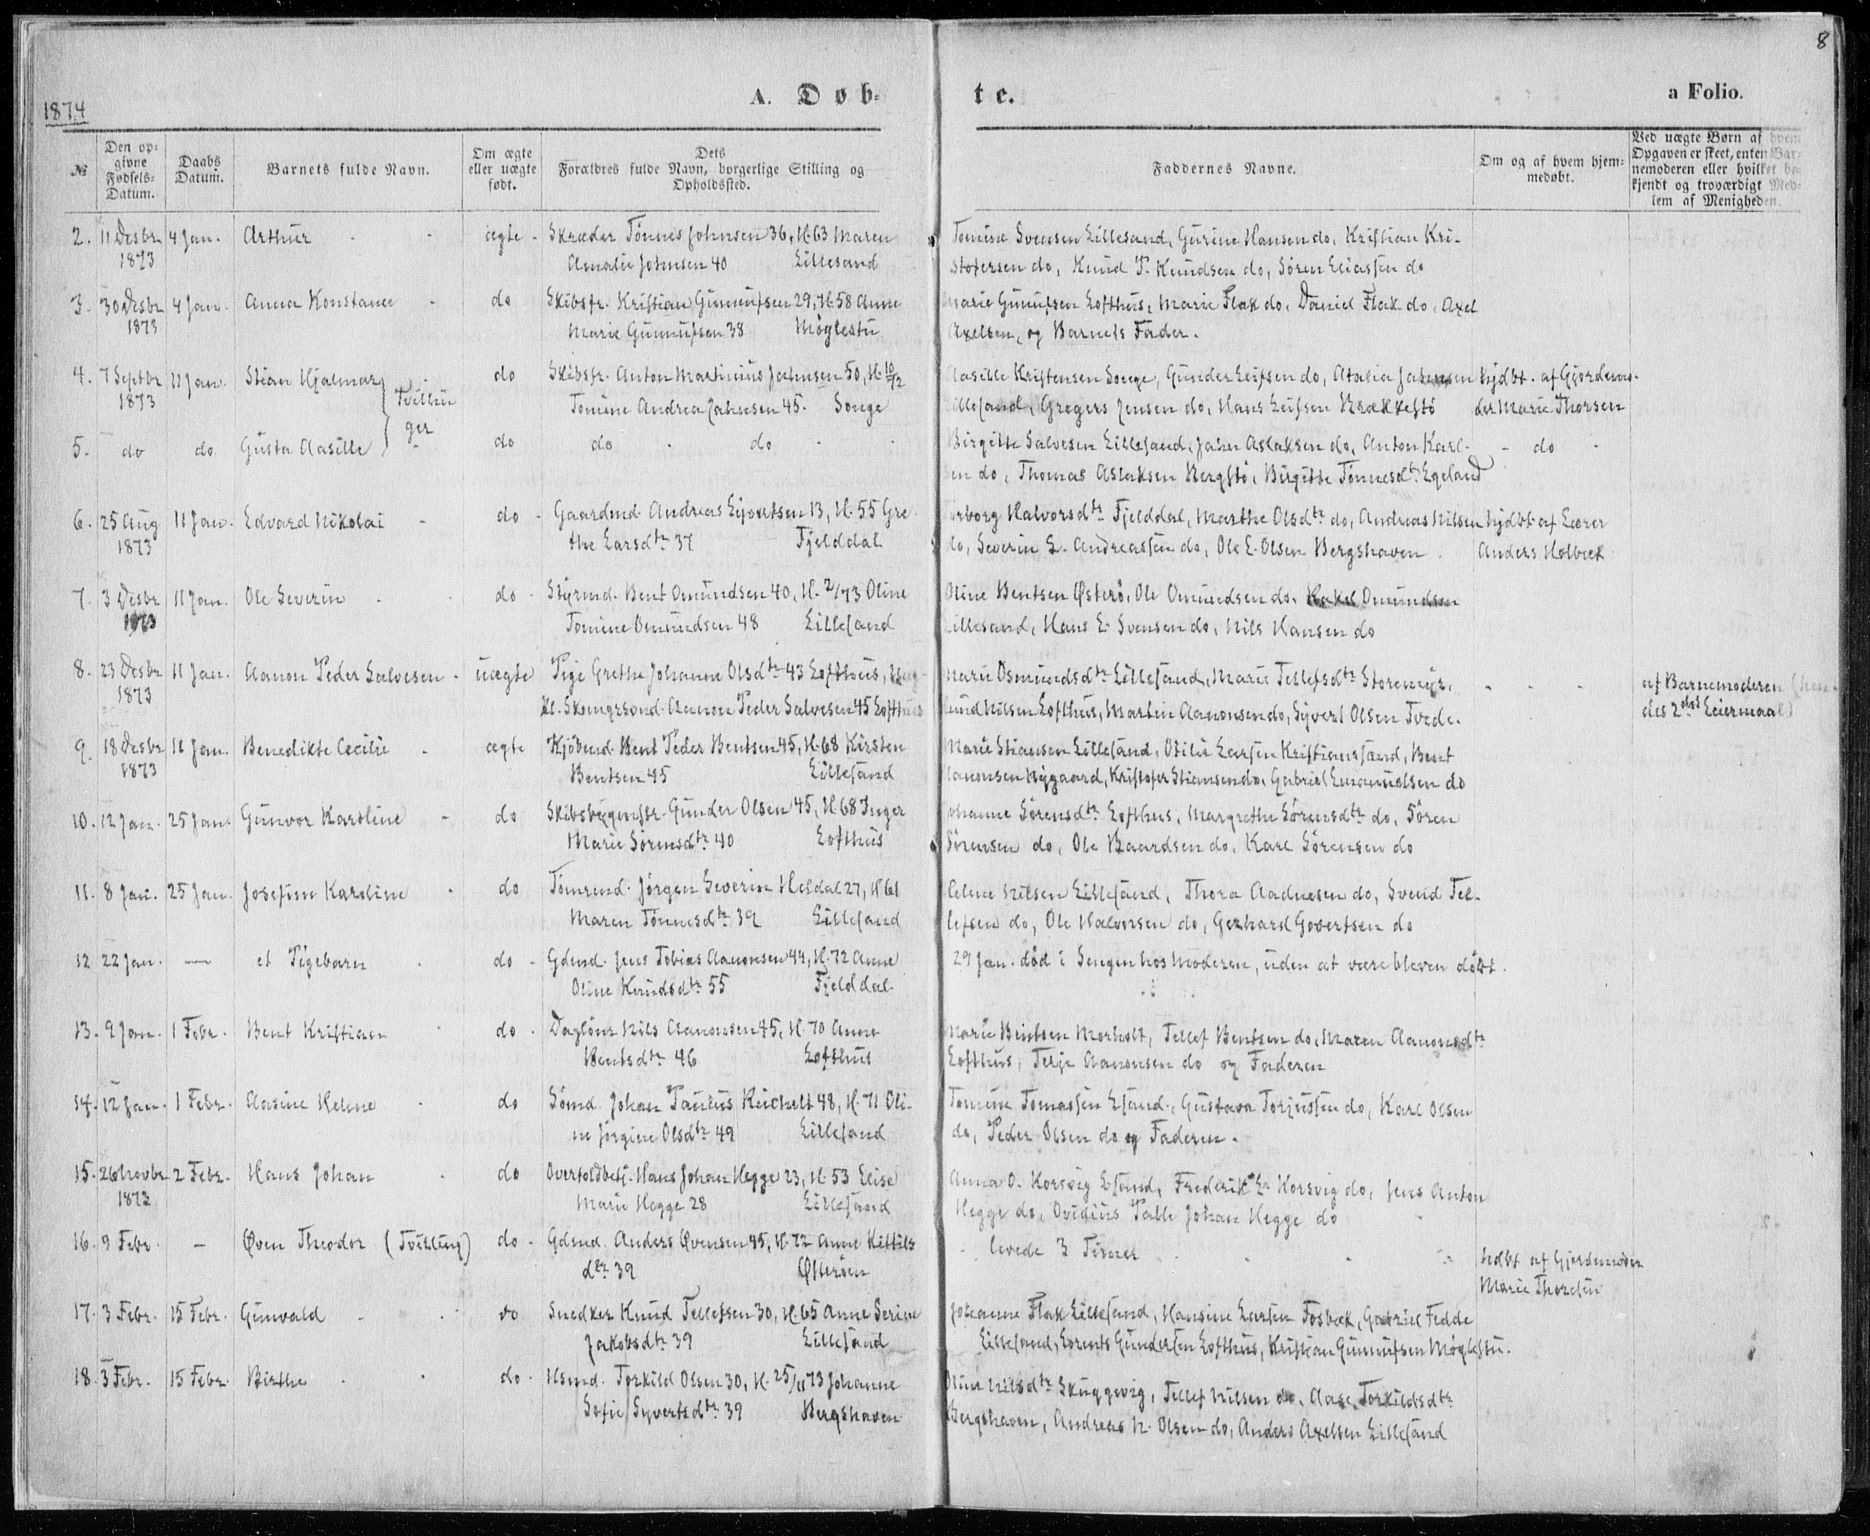 8
1874
A. Døb-
te.
a Folio.
№
Den op-
givne
Fødsels-
Datum.
Daabs
Datum.
Barnets fulde Navn.
Om ægte
eller uægte
født.
Dets
Forældres fulde Navn, borgerlige Stilling og
Opholdssted.
Faddernes Navne.
Om og af hvem hjem-
medøbt.
Ved uægte Børn af hvem
Opgaven er skeet, enten Bar-
nemoderen eller hvilket be-
kjendt og troværdigt Med-
lem af Menigheden.
2. 11 Desbr 4 Jan. Arthur ægte Skræder Tønnes Johnsen 36, H. 63 Maren Tomine Svensen Lillesand, Gurine Hansen do, Kristian Kri-
1873 Amalie Johnsen 40 Lillesand stofersen do, Knud P. Knudsen do, Søren Eliassen do
3. 30 Desbr 4 Jan. Anna Konstance do Skibsfr. Kristian Gunnufsen 29, H. 58 Anne Marie Gunnufsen Lofthus, Marie Flak do, Daniel Flak do, Axel
1873 Marie Gunnufsen 38 Møglestu Axelsen, og Barnets Fader.
4. 7 Septbr 11 Jan. Stian Hjalmar do Skibsfr. Anton Martinius Jahnsen 50, H. Aasille Kristensen Songe, Gunder Leifsen do, Atalia Jahnsen hjdbt. af Gjordemo-
1873 Tvillin Tomine Andrea Jahnsen 45. Songe Lillesand, Gregers Jensen do, Hans Leifsen Krækkestø der Marie Thorsen
ger
5. do do Gusta Aasille do do do Birgitte Salvesen Lillesand, Jahn Aslaksen do, Anton Karl- do
sen do, Thomas Aslaksen Bergstø, Birgitte Tønnesdtr Egeland
6. 25 Aug 11 Jan. Edvard Nikolai do Gaardmd. Andreas Syvertsen 13, H. 55 Gre- Halvorsdtr Fjelddal, Marthe Olsdtr do, Andreas Nilsen hjdbt af Lærer
1873 the Larsdtr 37 Fjelddal do, Severin L. Andreassen do, Ole E. Olsen Bergshaven. Anders Holbæk
7. 3 Desbr 11 Jan. Ole Severin do Styrmd. Bent Omundsen 40, H. 2/73 Oline Oline Bentsen Østerø, Ole Omundsen do, Omundsen
1873 Tomine Omundsen 48 Lillesand Lillesand, Hans E. Svensen do, Nils Hansen do
8. 23 Desbr 11 Jan. Aanon Peder Salvesen uægte Pige Grethe Johanne Olsdtr 43 Lofthus, Ung- Marie Osmundsdtr Lillesand, Marie Tellefsdtr Storemyr, af Barnemoderen (hen-
1873 kl. Skomgrsønd. Aanon Peder Salvesen 45 Lofthus Nilsen Lofthus, Martin Aanonsen do, Syvert Olsen Tvede. des 2det Leiermaal)
9. 18 Desbr 11 Jan. Benedikte Cecilie ægte Kjøbmd. Bent Peder Bentsen 45, H. 68 Kirsten Marie Stiansen Lillesand, Otilie Larsen Kristianssand, Bent
1873 Bentsen 45 Lillesand Aanonsen Nygaard, Kristofer Stiansen do, Gabriel Emanuelsen do
10. 12 Jan. 25 Jan. Gunvor Karoline do Skibsbygmstr. Gunder Olsen 45, H. 68 Inger Johanne Sørensdtr Lofthus, Margrethe Sørensdtr do, Søren
Marie Sørensdtr 40 Lofthus Sørensen do, Ole Baardsen do, Karl Sørensen do
11. 8 Jan. 25 Jan. Josefine Karoline do Tømrmd. Jørgen Severin Heldal 27, H. 61 Nilsen Lillesand, Thora Aadnesen do, Svend Tel-
Maren Tønnesdtr 39 Lillesand lefsen do, Ole Halvorsen do, Gerhard Govertsen do
12 22 Jan. — et Pigebarn do Gdmd. Jens Tobias Aanonsen 44, H. 72 Anne 29 Jan. død i Sengen hos Moderen, uden at være bleven døbt.
Oline Knudsdtr 55 Fjelddal.
13. 9 Jan. 1 Febr. Bent Kristian do Daglønr Nils Aanonsen 45, H. 70 Anne Marie Bentsen Morholt, Tellef Bentsen do, Maren Aanonsdtr
Bentsdtr 46 Lofthus Lofthus, Telje Aanonsen do og Faderen
14. 12 Jan. 1 Febr. Aasine Helene do Sømd. Johan Paulus Reichelt 48, H. 71 Oli- Tomine Tomassen Lsand., Gustava Torjussen do, Karl Olsen
ne Jørgine Olsdtr 49 Lillesand do, Peder Olsen do og Faderen.
15. 26 Novbr 2 Febr. Hans Johan do Overtoldbetj. Hans Johan Hegge 23, H. 53 Elise Anna O. Korsvig Lsand, Frederik L. Korsvig do, Jens Anton
1873 Marie Hegge 28 Lillesand Hegge do, Ovidius Palle Johan Hegge do
16. 9 Febr. — Øven Theodor (Tvilling) do Gdmd. Anders Øvensen 45, H. 72 Anne Kittils- levede 3 Timer hdbt af Gjordemoder
dtr 39 Østerøen Marie Thoresen
17. 3 Febr. 15 Febr. Gunvald do Snedker Knud Tellefsen 30, H. 65 Anne Serine Johanne Flak Lillesand, Hansine Larsen Fosbæk, Gabriel Fedde
Jakobsdtr 39 Lillesand Lillesand, Lorents Gundersen Lofthus, Kristian Gunnufsen Møglestu.
18. 3 Febr. 15 Febr. Birthe do Hsmd. Torkild Olsen 30, H. 25/11 73 Johanne Oline Nilsdtr Skuggevig, Tellef Nilsen do, Aase Torkildsdtr
Sofie Syvertsdtr 39 Bergshaven Bergshaven, Andreas N. Olsen do, Anders Axelsen Lillesand